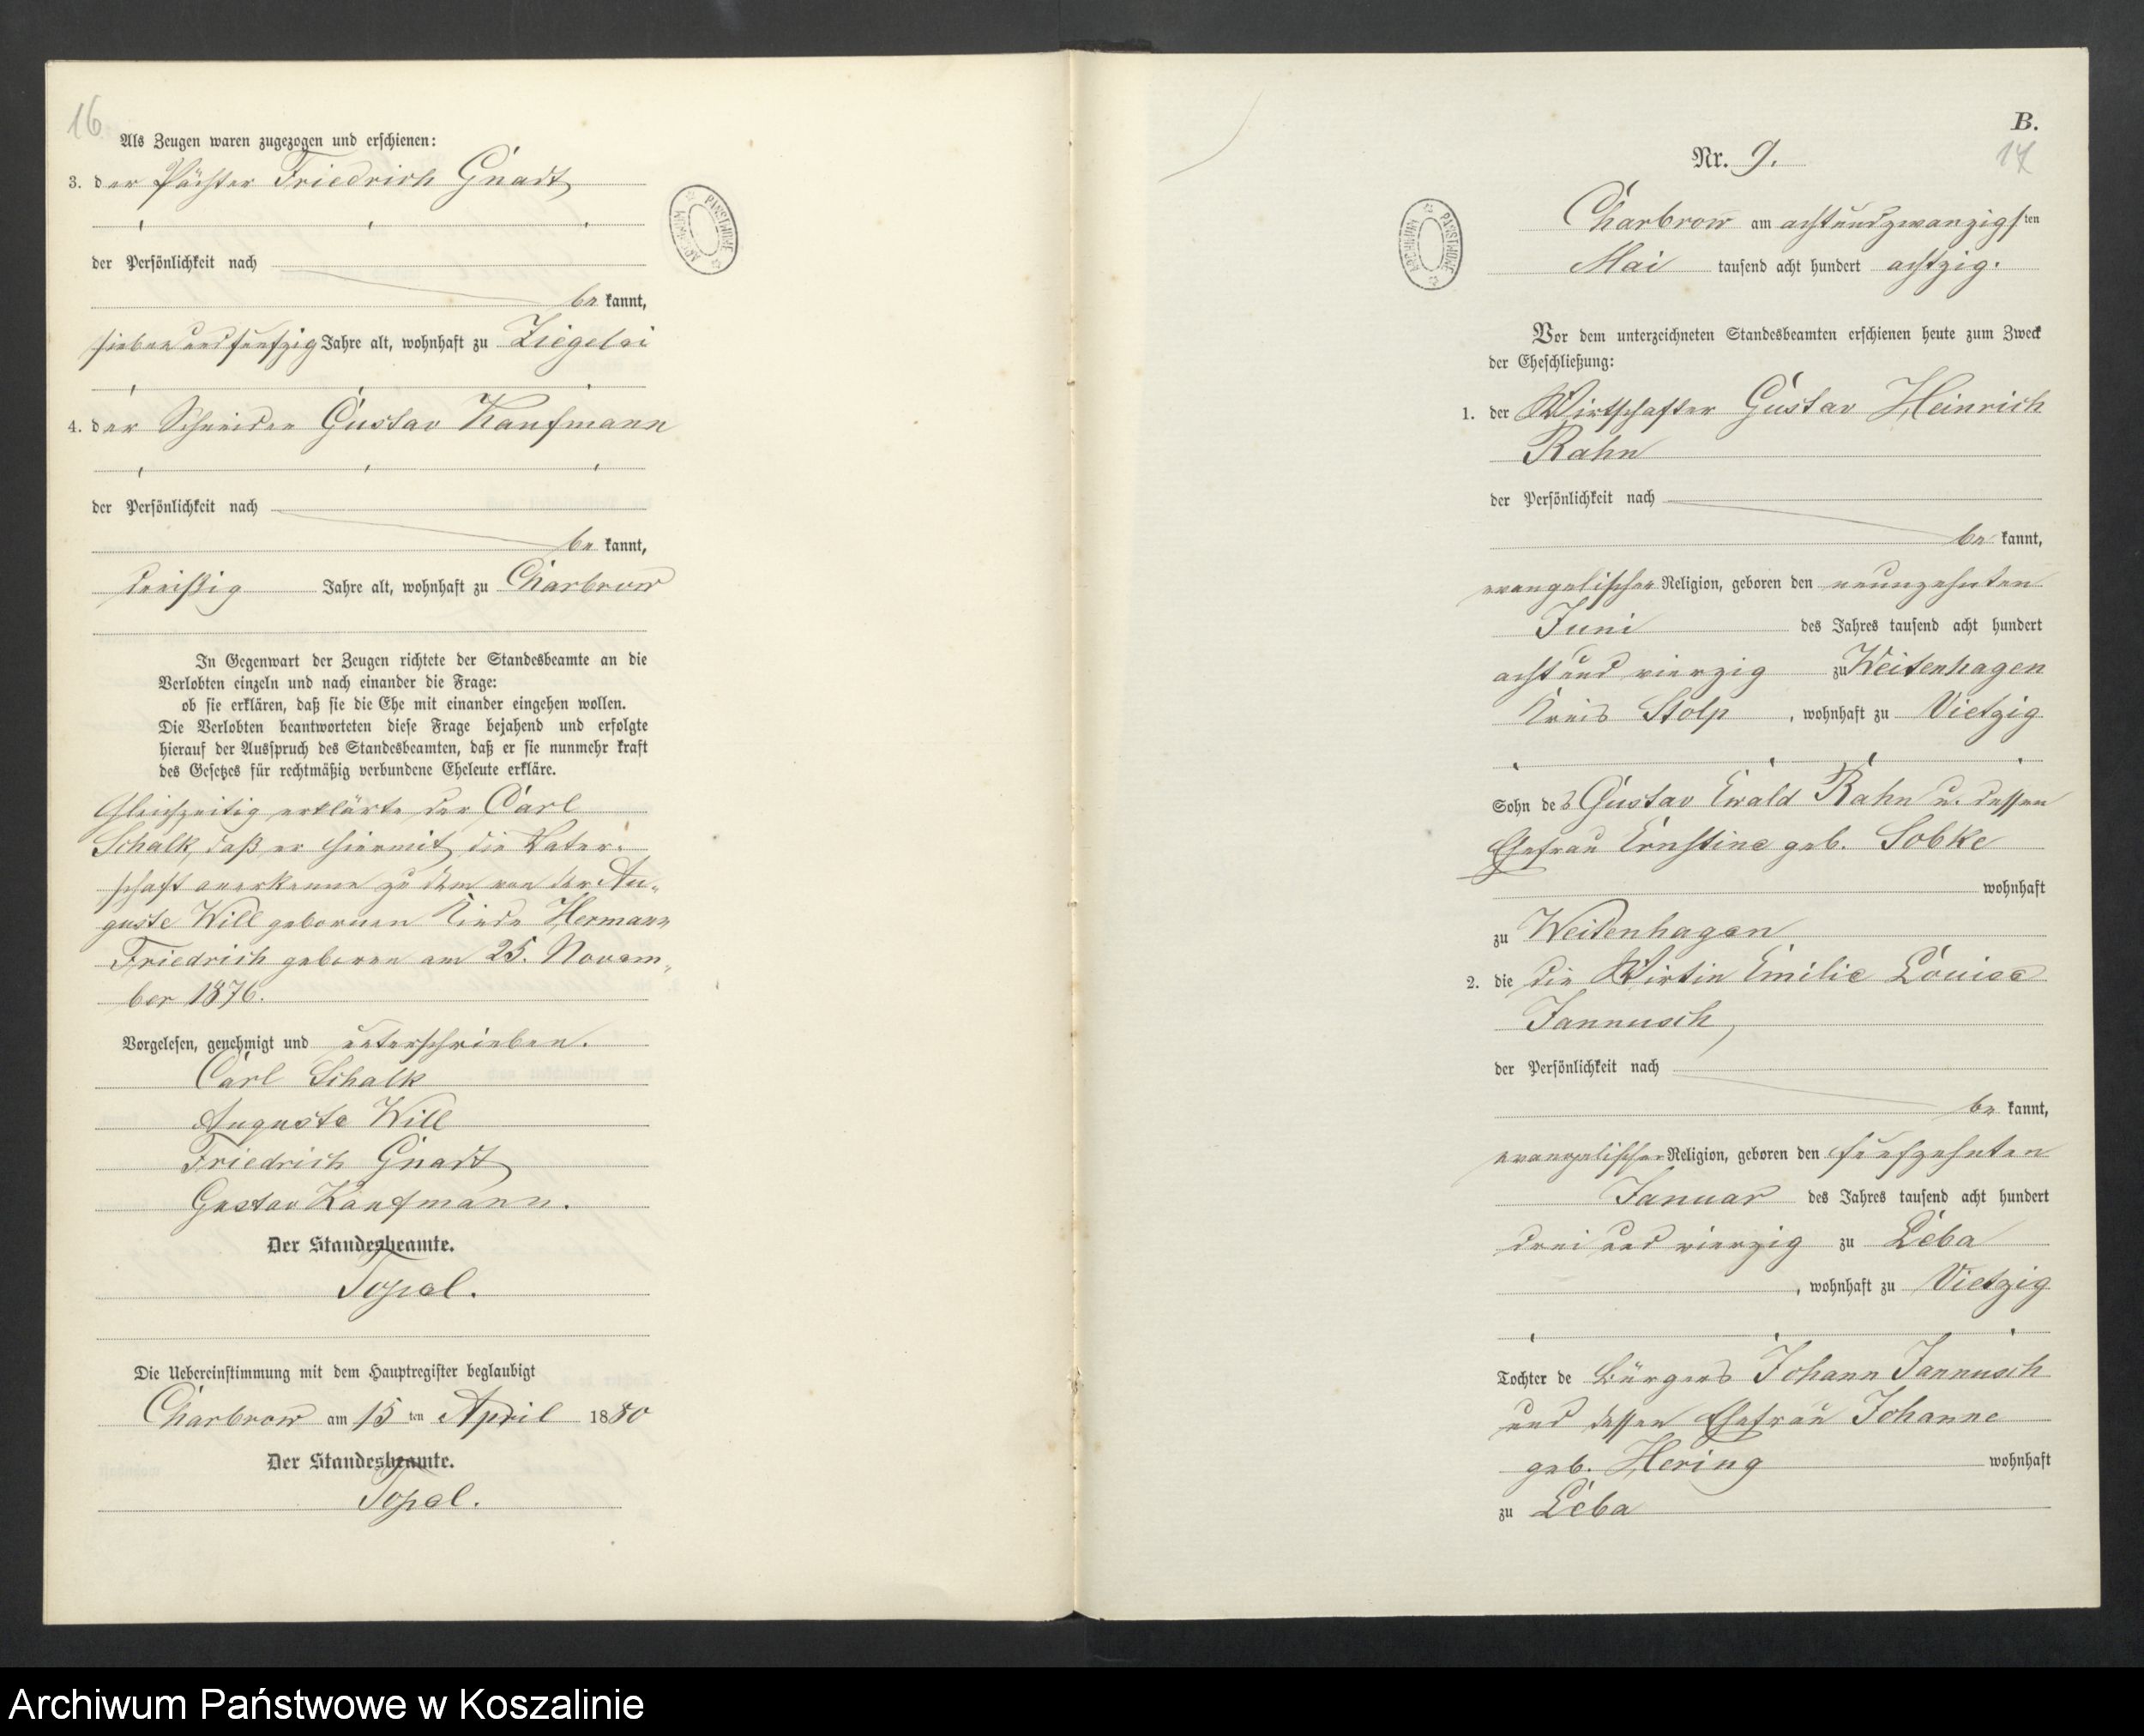 16
Als Zeugen waren zugezogen und erschienen:
3. der Pächter Friedrich Gnadt
der Persönlichkeit nach
be kannt,
sieben und funfzig Jahre alt, wohnhaft zu Ziegelei
4. der Schneider Gustav Kaufmann
der Persönlichkeit nach
be kannt,
dreißig Jahre alt, wohnhaft zu Charbrow
In Gegenwart der Zeugen richtete der Standesbeamte an die
Verlobten einzeln und nach einander die Frage:
ob sie erklären, daß sie die Ehe mit einander eingehen wollen.
Die Verlobten beantworteten diese Frage bejahend und erfolgte
hierauf der Ausspruch des Standesbeamten, daß er sie nunmehr kraft
des Gesetzes für rechtmäßig verbundene Eheleute erkläre.
Gleichzeitig erklärte der Carl
Schalk, daß er hiermit die Vater-
schaft anerkenne zu dem von der Au-
guste Will gebornen Kinde Hermann
Friedrich geboren am 25. Novem-
ber 1876.
Vorgelesen, genehmigt und unterschrieben.
Carl Schalk
Auguste Will
Friedrich Gnadt
Gustav Kaufmann.
Der Standesbeamte.
Topel.
Die Uebereinstimmung mit dem Hauptregister beglaubigt
Charbrow am 15 ten April 1880
Der Standesbeamte.
Topel.
ARCHIWUM PAŃSTWOWE
B.
17
Nr. 9.
ARCHIWUM PAŃSTWOWE
Charbrow am achtundzwanzigsten
Mai tausend acht hundert achtzig.
Vor dem unterzeichneten Standesbeamten erschienen heute zum Zweck
der Eheschließung:
1. der Wirtschafter Gustav Heinrich
Rahn
der Persönlichkeit nach
be kannt,
evangelischer Religion, geboren den neunzehnten
Juni des Jahres tausend acht hundert
acht und vierzig zu Weitenhagen
Kreis Stolp, wohnhaft zu Vietzig
Sohn des Gustav Ewald Rahn u. dessen
Ehefrau Ernstine geb. Sobke
wohnhaft
zu Weitenhagen
2. die die Wirtin Emilie Louise
Jannusch,
der Persönlichkeit nach
be kannt,
evangelischer Religion, geboren den funfzehnten
Januar des Jahres tausend acht hundert
drei und vierzig zu Leba
, wohnhaft zu Vietzig
Tochter de Bürgers Johann Jannusch
und dessen Ehefrau Johanne
geb. Hering wohnhaft
zu Leba
Archiwum Państwowe w Koszalinie